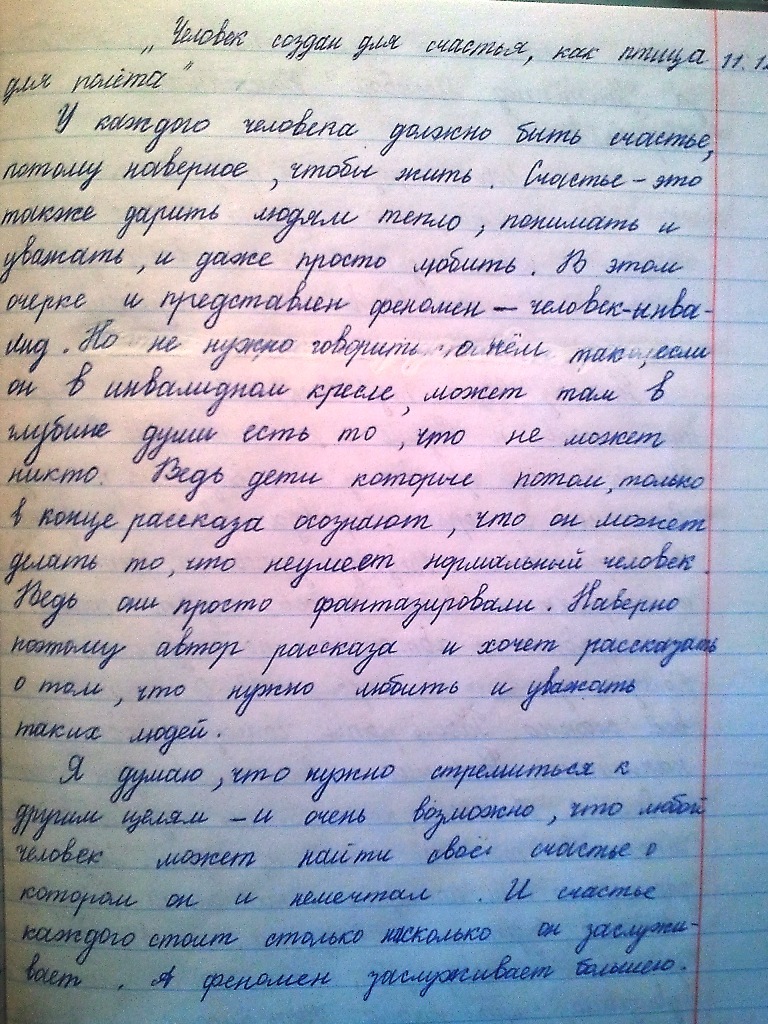 „Человек создан для счастья, как птица 11.12
для полёта"
У каждого человека должно быть счастье,
потому наверное, чтобы жить. Счастье – это
также дарить людям тепло, понимать и
уважать, и даже просто любить. В этом
очерке и представлен феномен – человек-инва-
лид. Но не нужно говорить о нём так, если
он в инвалидном кресле, может там в
глубине души есть то, что не может
никто. Ведь дети которые потом, только
в конце рассказа осознают, что он может
делать то, что неумеет нормальный человек.
Ведь они просто фантазировали. Наверно
поэтому автор рассказа и хочет рассказать
о том, что нужно любить и уважать
таких людей.
Я думаю, что нужно стремиться к
другим целям – и очень возможно, что любой
человек может найти своё счастье о
котором он и немечтал. И счастье
каждого стоит столько насколько он заслужи-
вает. А феномен заслуживает большего.